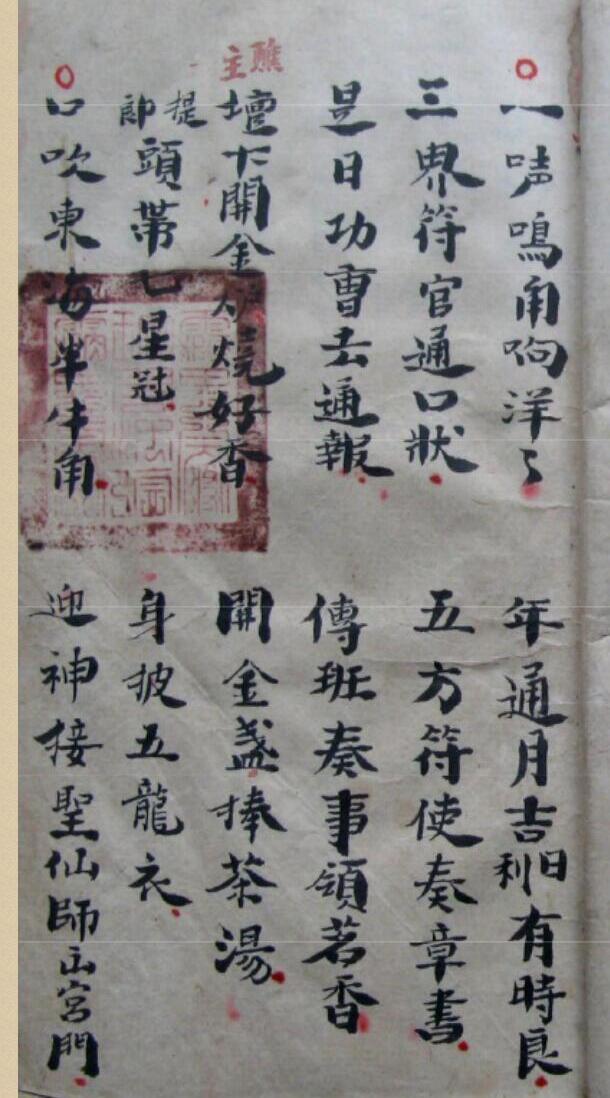 一唢鳴角响洋〻 年通月吉日利有時良
三界符官通口狀 五方符使奏章書
是日功曹去通報 傳班奏事領茗香
醮主
壇下開金炉燒好香 開金盞捧茶湯
提郎頭帶七星冠 身披五龍衣
口吹東海半牛角 迎神接聖仙師出宮門